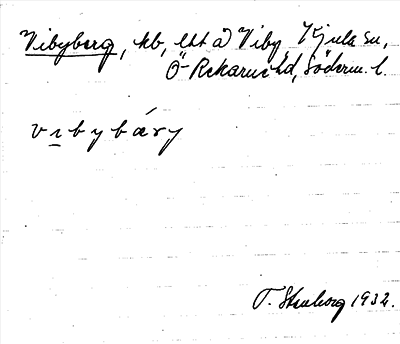 Vibyberg, hb, lht å Viby, Kjula sn,
Ö-Rekarne hd, Söderm. l.
vibybáry
T. Stenborg 1932.